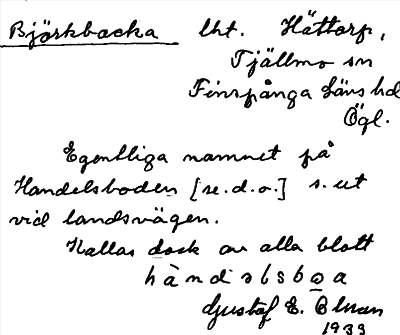 Björkbacka lht. Hättorp,
Tjällmo sn
Finspånga läns hd
Ögl.
Egentliga namnet på
Handelsboden [se.d.o.] s. ut
vid landsvägen.
Kallas dock av alla blott
hàndəlsbo̱a
Gustaf E. Olman
1933